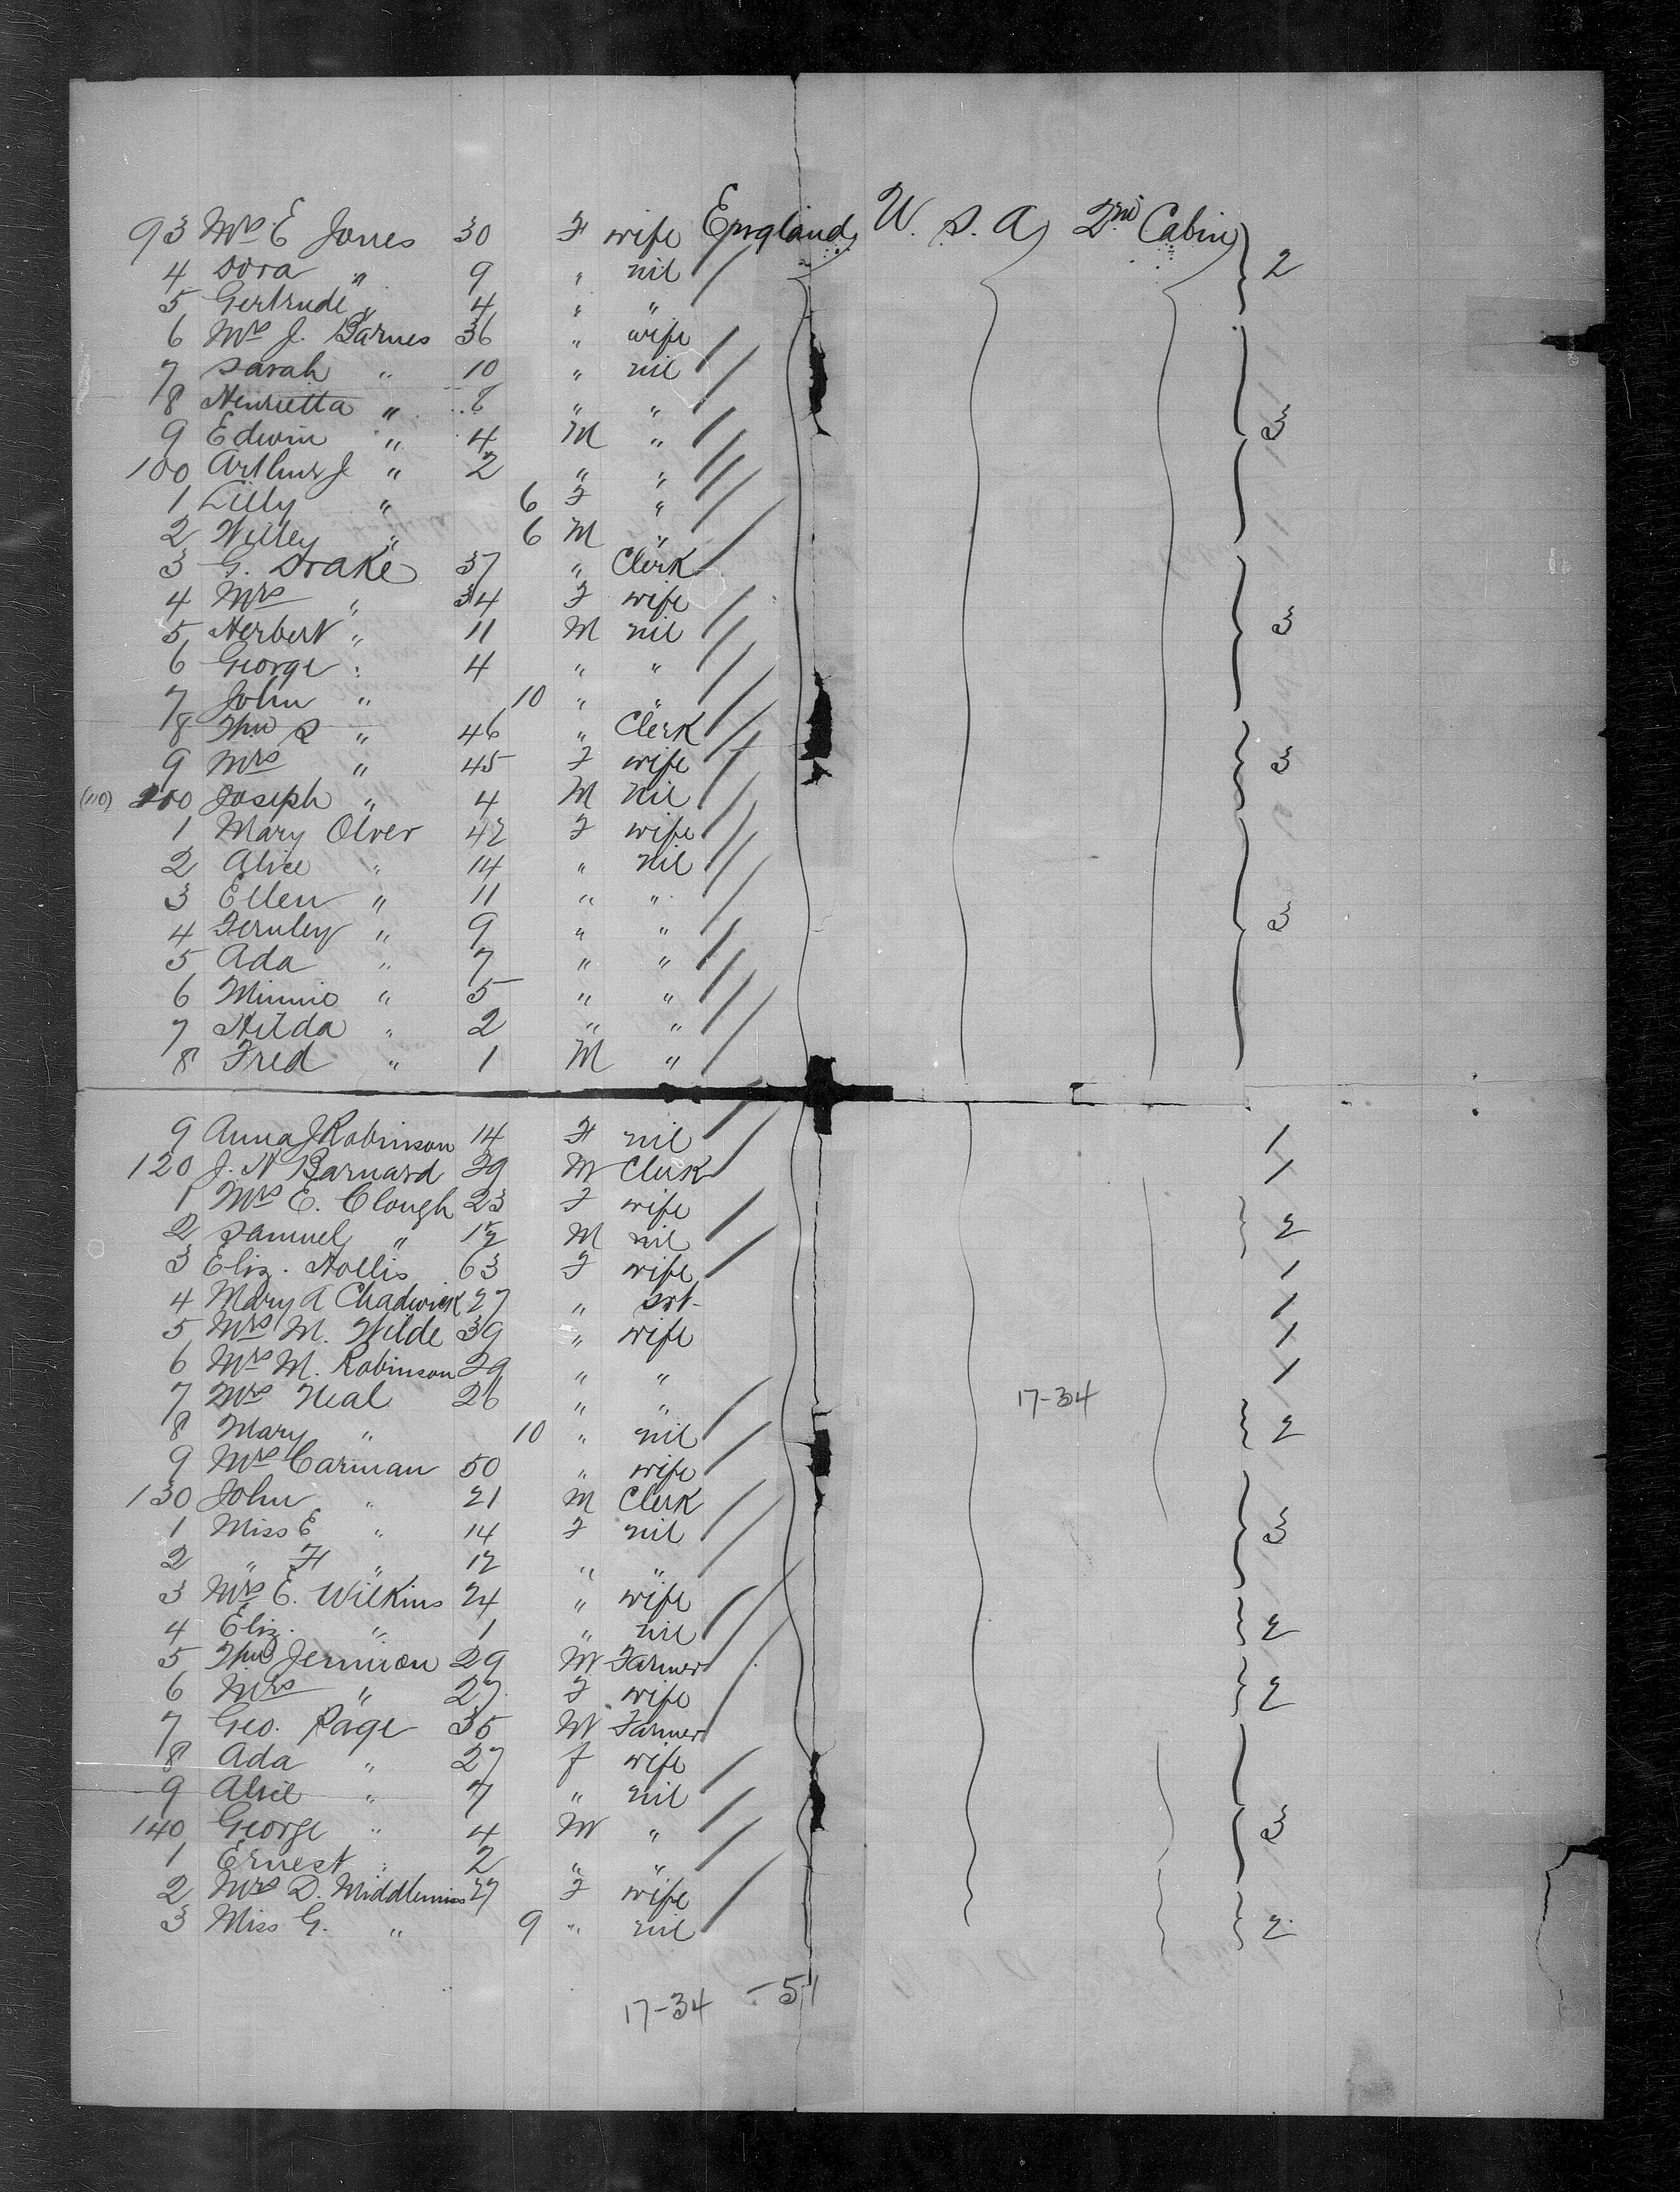 93 Mrs E Jones 30 F wife England U. S. A 2nd Cabin
4 Dora " 9 " nil 2
5 Gertrude " 4 " "
6 Mrs J. Barnes 36 " wife
7 Sarah " 10 " nil
8 Henrietta " 8 " "
9 Edwin " 4 M " 3
100 Arthur J " 2 " "
1 Lilly " 6 F "
2 Willey " 6 M "
3 G. Drake 37 " Clerk
4 Mrs " 34 F wife
5 Herbert " 11 M nil 3
6 George " 4 " "
7 John " 10 " "
8 Thos S " 46 " Clerk
9 Mrs " 45 F wife 3
(110) Joseph " 4 M nil
1 Mary Olver 42 F wife
2 Alice " 14 " nil
3 Ellen " 11 " "
4 Fernley " 9 " " 3
5 Ada " 7 " "
6 Minnie " 5 " "
7 Hilda " 2 " "
8 Fred " 1 M "
9 Anna J Robinson 14 F nil 1
120 J. N Barnard 29 M Clerk 1
1 Mrs E. Clough 23 F wife
2 Samuel " M nil 2
3 Eliz. Hollis 63 F wife 1
4 Mary A Chadwick 27 " 1
5 Mrs M. Wilde 39 " wife 1
6 Mrs M. Robinson 29 " " 1
7 Mrs Neal 26 " " 17-34
8 Mary " 10 " nil 2
9 Mrs Carman 50 " wife
130 John " 21 M Clerk
1 Miss E " 14 F nil 3
2 " F " 12 " "
3 Mrs E. Wilkins 24 " wife
4 Eliz. " 1 " nil 2
5 Thos Jermion 29 M Farmer
6 Mrs " 27 F wife 2
7 Geo. Page 35 M Farmer
8 Ada " 27 f wife
9 Alice " 7 " nil
140 George " 4 M " 3
1 Ernest " 2 " "
2 Mrs D. Middlemiss 27 F wife
3 Miss G. " 9 " nil 2
17-34 -51